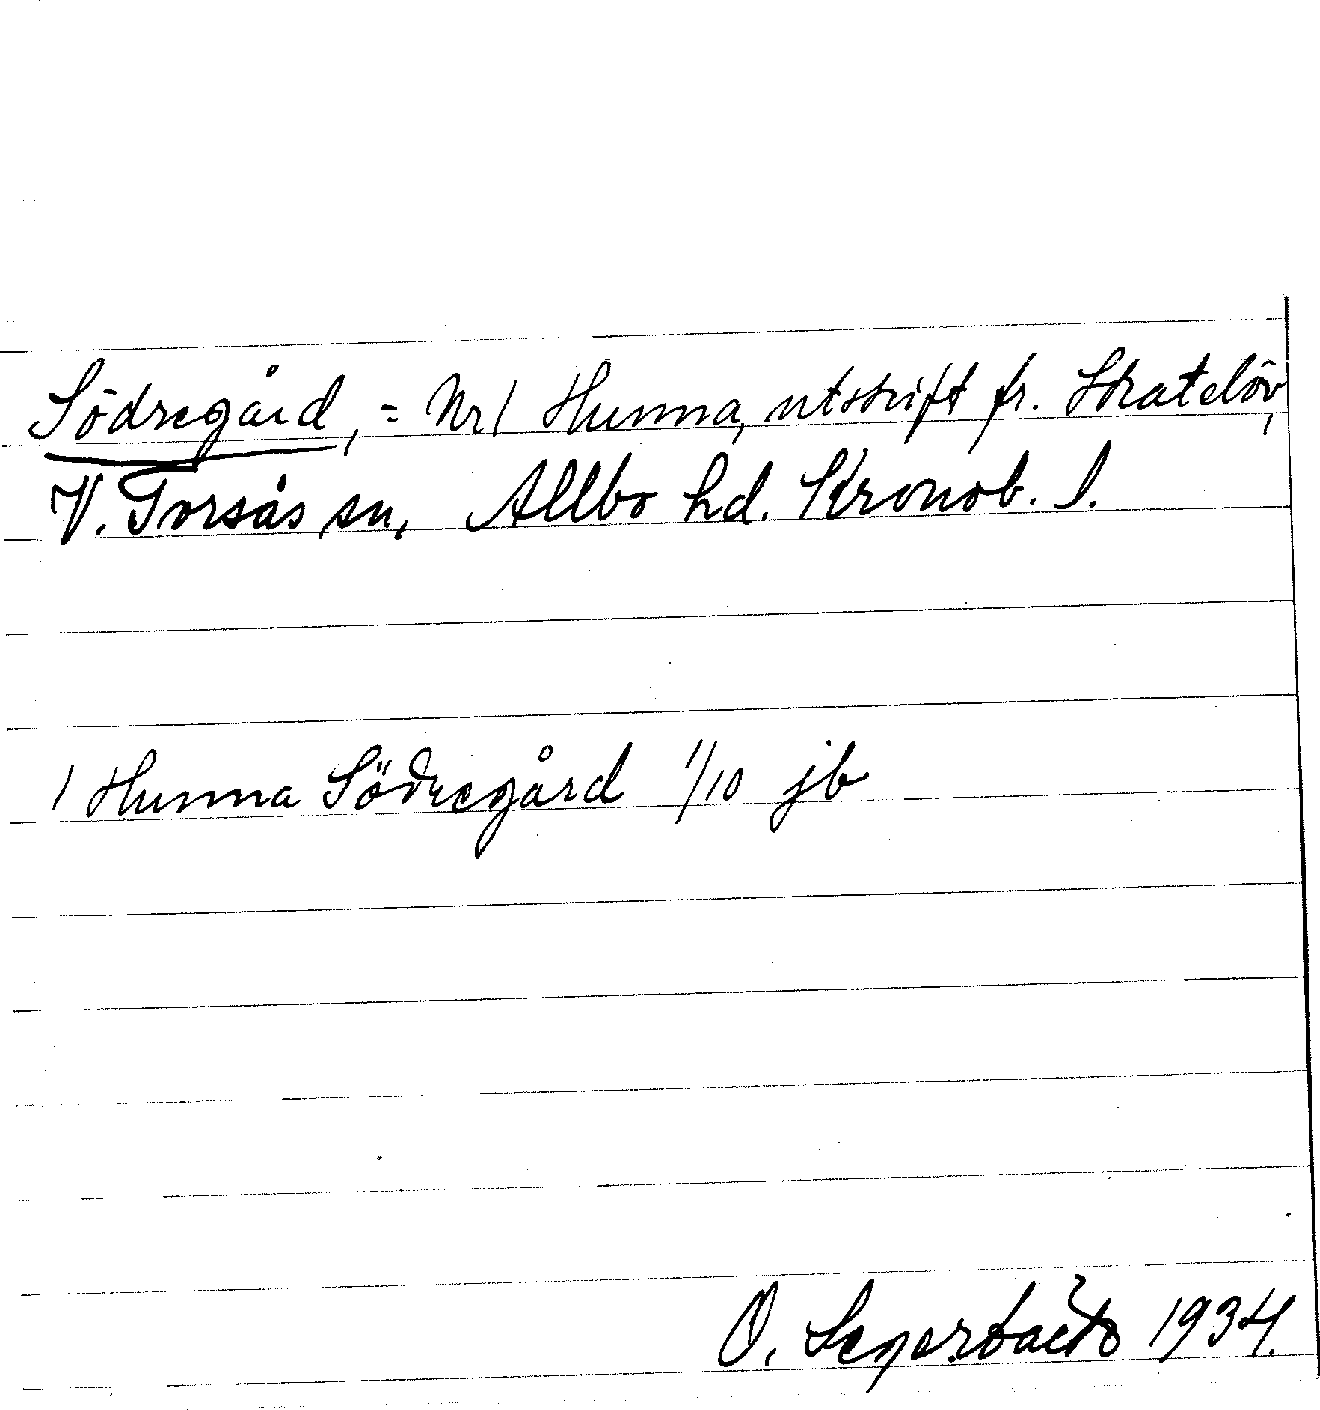 Södregård, = Nr 1 Hunna, utskrift fr. Skatelöv,
V. Torsås sn, Allbo hd. Kronob. l.
1 Hunna Södregård 1/10 jb
O. 1934.